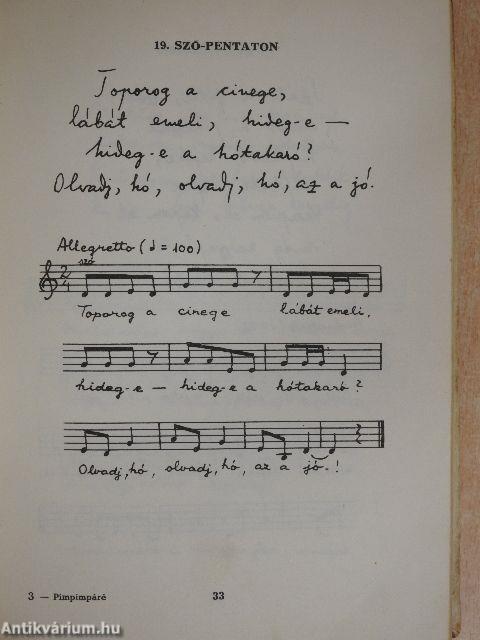 19. SZÓ-PENTATON
Toporog a cinege,
lábát emeli, hideg-e —
hideg-e a hótakaró?
Olvadj, hó, olvadj, hó, az a jó.
Allegretto (♩ = 100)
szó
2/4
Toporog a cinege lábát emeli,
hideg-e — hideg-e a hótakaró?
Olvadj, hó, olvadj, hó, az a jó.!
3 — Pimpimpáré 33
Antikvárium.hu